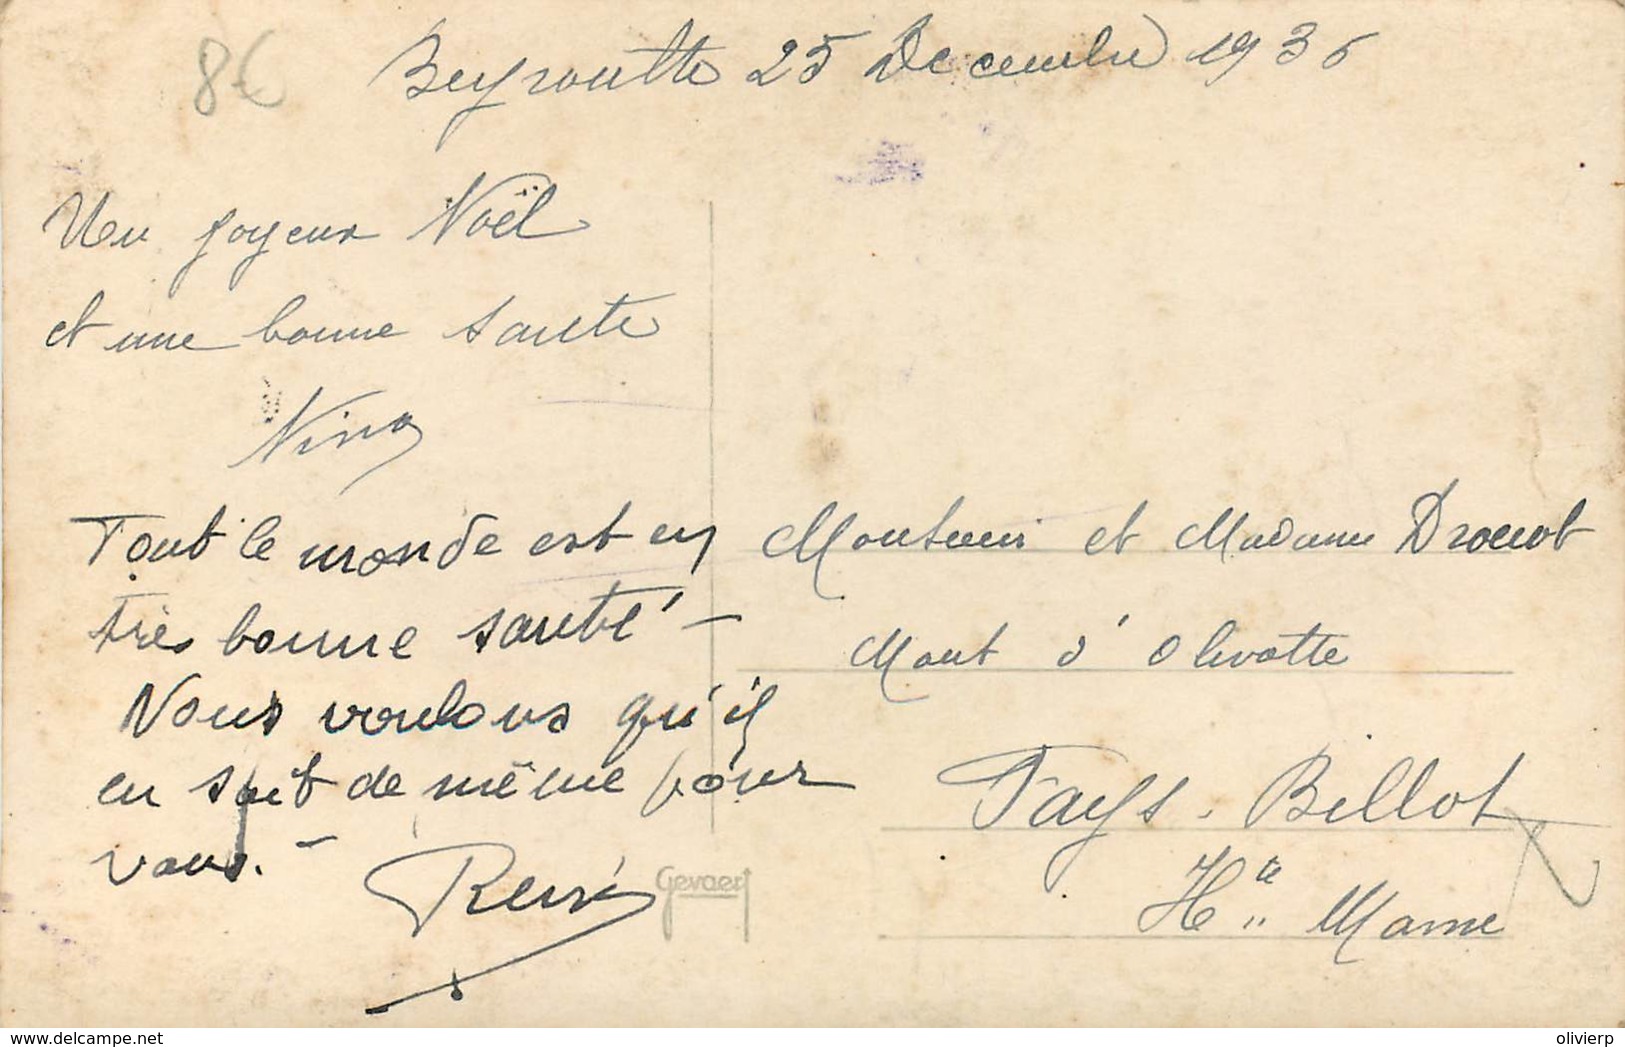 8€
Beyroutte 25 Decembre 1936
Un joyeux Noël
et une bonne sante
Nina
Tout le monde est en
très bonne santé -
Nous voulons qu'il
en soit de même pour
vous. -
René
Gevaert
Monsieur et Madame Drouot
Mont d'Olivotte
Fays-Billot
Hte Marne
delcampe.net
olivierp